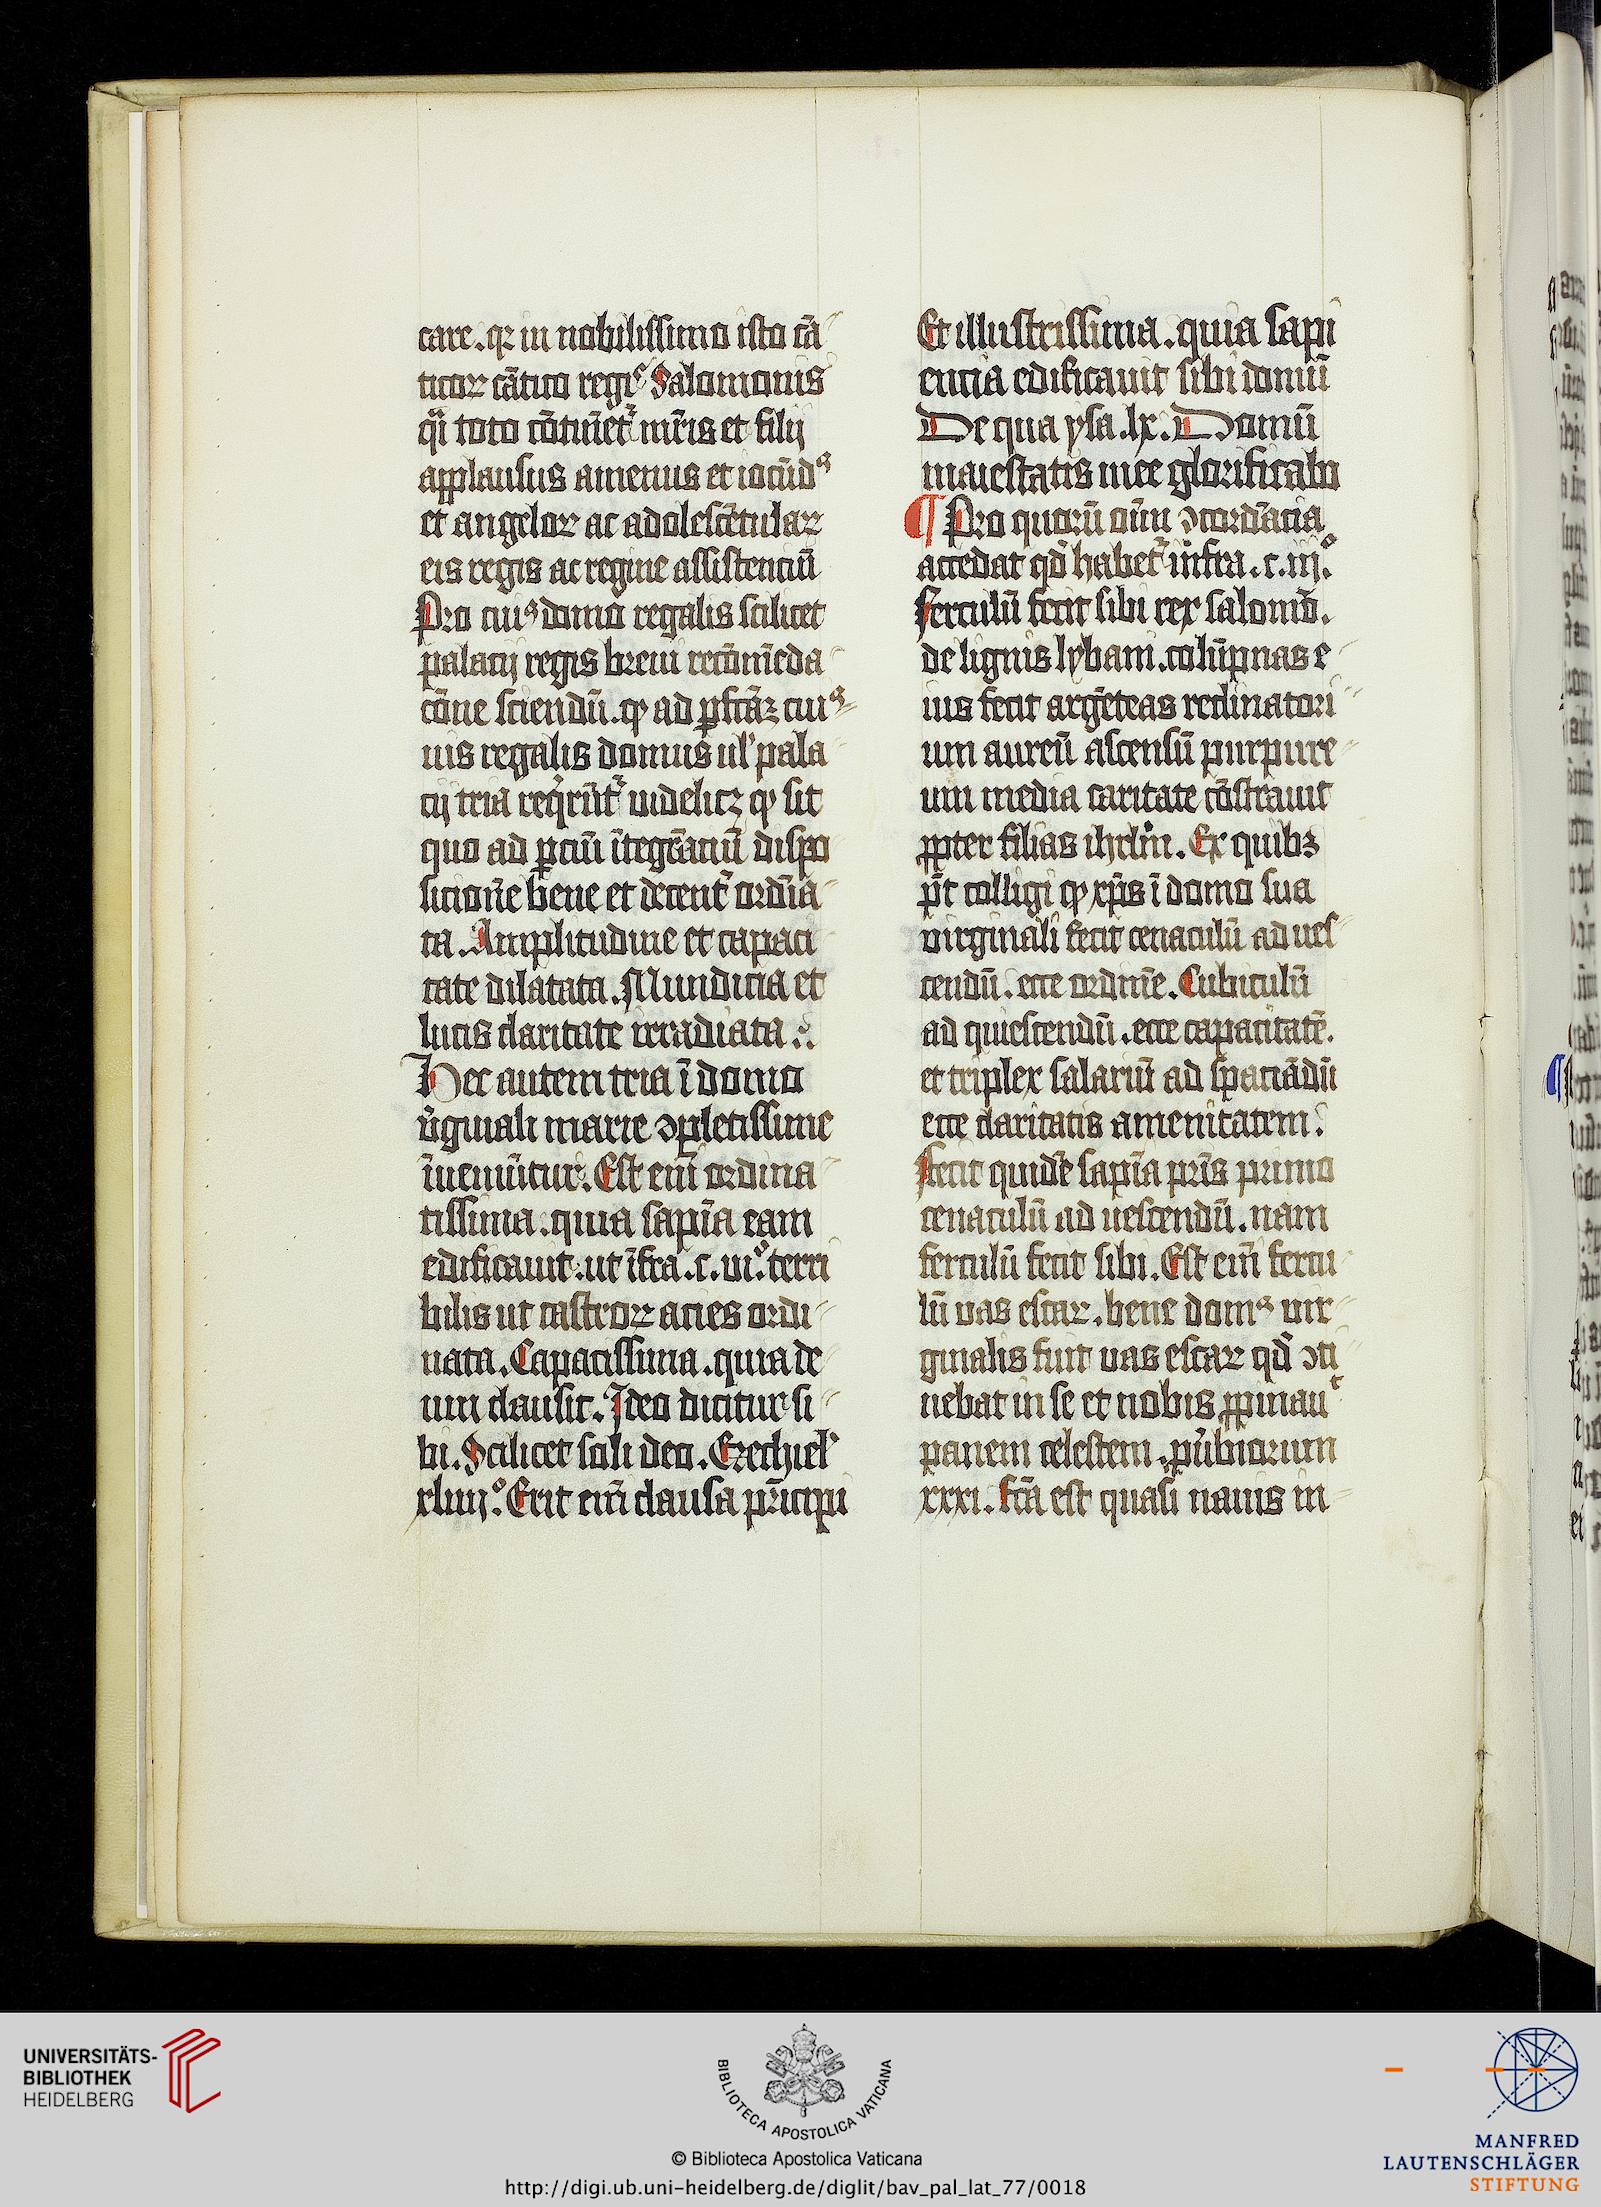 care. qꝛ in nobilissimo isto cā
ticoꝝ cātico regis Salomonis
qͥ toto cōtinet᷑ mr̄is et filij
applausus amenus et iocūdꝰ
et angeloꝝ ac adolescētulaꝝ
eis regis ac regine assistenciū
Pro cuiꝰ domo regalis scilicet
palacij regis breui recōm̄eda
cōne sciendū. ꝙ ad ꝑfcāꝫ cuiꝰ
uis regalis domus ul' pala
cij tria reqͥrūt᷑ videlicꝫ ꝙ sit
quo ad ꝑciū ītegrāciū dispo
sicion̄e bene et decent᷑ ordīa
ta. Amplitudine et capaci
tate dilatata. Mundicia et
lucis claritate irradiata :.
Hec autem tria ī domo
v̄ginali marie ꝯpletissime
īueniūtur. Est enī ordina
tissima. quia sapīa eam
edificauit. ut īfra. c. vi.° terri
bilis ut castroꝝ acies ordi
nata. Capacissima. quia de
um clausit. Ideo dicitur si
bi. Scilicet soli deo. Ezechiel'
xliiij.° Erit enī clausa prīcipi
Et illustrissima. quia sapi
encia edificauit sibi domū
De qua ysa. lx. Domū
maiestatis mee glorificabo
¶ Pro quorū oīm ꝯcordācia
accedat qd̄ habet᷑ infra. c. iij.°
ferculū fecit sibi rex salomō.
de lignis lybani. colūpnas e
ius fecit argēteas reclinatori
um aureū ascensū purpure
um media caritate cōstrauit
ꝓpter filias ihrlm̄. Ex quibꝫ
pt̄ colligi ꝙ xp̄s ī domo sua
virginali fecit cenaculū ad ues
cendū. ecce ordinē. Cubiculū
ad quiescendū. ecce capacitatē.
et triplex salariū ad spaciādū
ecce claritatis amenitatem.
Fecit quidē sapīa pr̄is primo
cenaculū ad uescendū. nam
ferculū fecit sibi. Est enī fercu
lū uas escaꝝ. bene domꝰ vir
ginalis fuit uas escaꝝ qd̄ ꝯti
nebat in se et nobis ꝓpinauͭ
panem celestem. pūbiorum
xxxi. fcā est quasi nauis in
UNIVERSITÄTS-
BIBLIOTHEK
HEIDELBERG
BIBLIOTECA APOSTOLICA VATICANA
© Biblioteca Apostolica Vaticana
http://digi.ub.uni-heidelberg.de/diglit/bav_pal_lat_77/0018
MANFRED
LAUTENSCHLÄGER
STIFTUNG